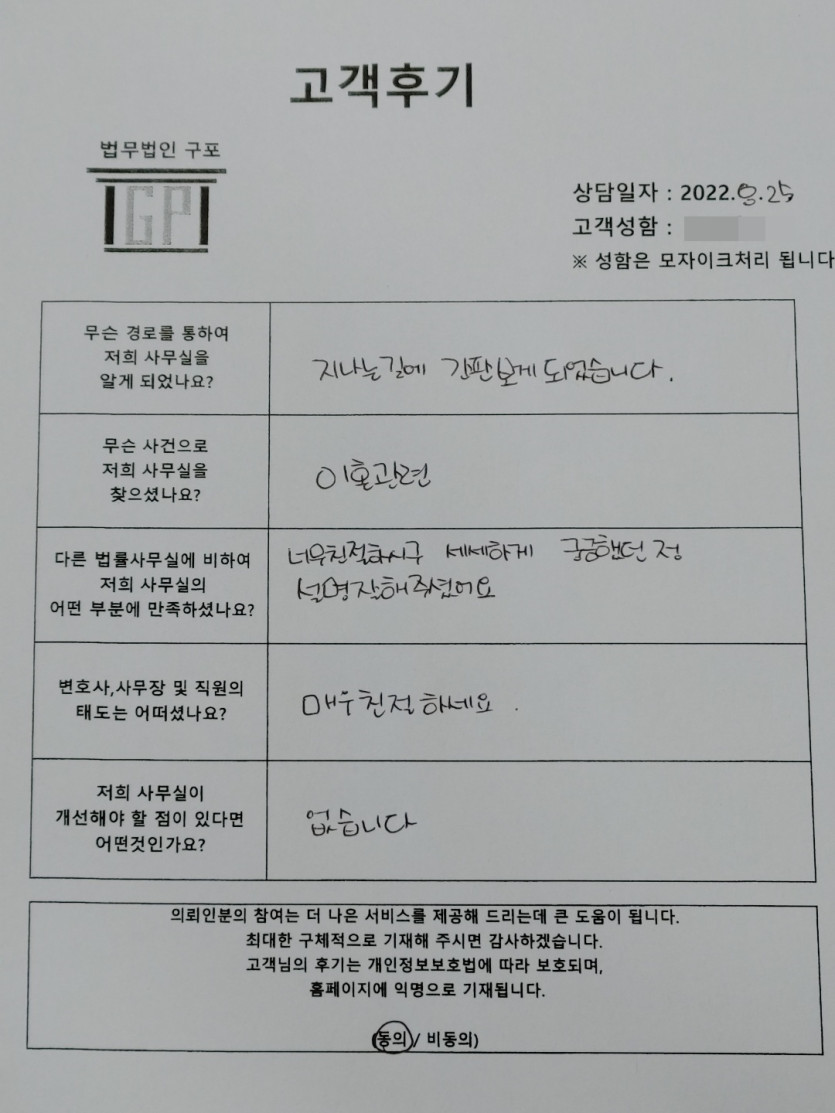 고객후기
법무법인 구포
GP
상담일자 : 2022.8.25
고객성함 :
※ 성함은 모자이크처리 됩니다
무슨 경로를 통하여
저희 사무실을
알게 되었나요?
지나는길에 간판보게되었습니다.
무슨 사건으로
저희 사무실을
찾으셨나요?
이혼관련
다른 법률사무실에 비하여
저희 사무실의
어떤 부분에 만족하셨나요?
너무친절하시구 세세하게 궁궁했던 정
설명잘해주셨어요
변호사,사무장 및 직원의
태도는 어떠셨나요?
매우친절하세요.
저희 사무실이
개선해야 할 점이 있다면
어떤것인가요?
없습니다
의뢰인분의 참여는 더 나은 서비스를 제공해 드리는데 큰 도움이 됩니다.
최대한 구체적으로 기재해 주시면 감사하겠습니다.
고객님의 후기는 개인정보보호법에 따라 보호되며,
홈페이지에 익명으로 기재됩니다.
(동의/ 비동의)